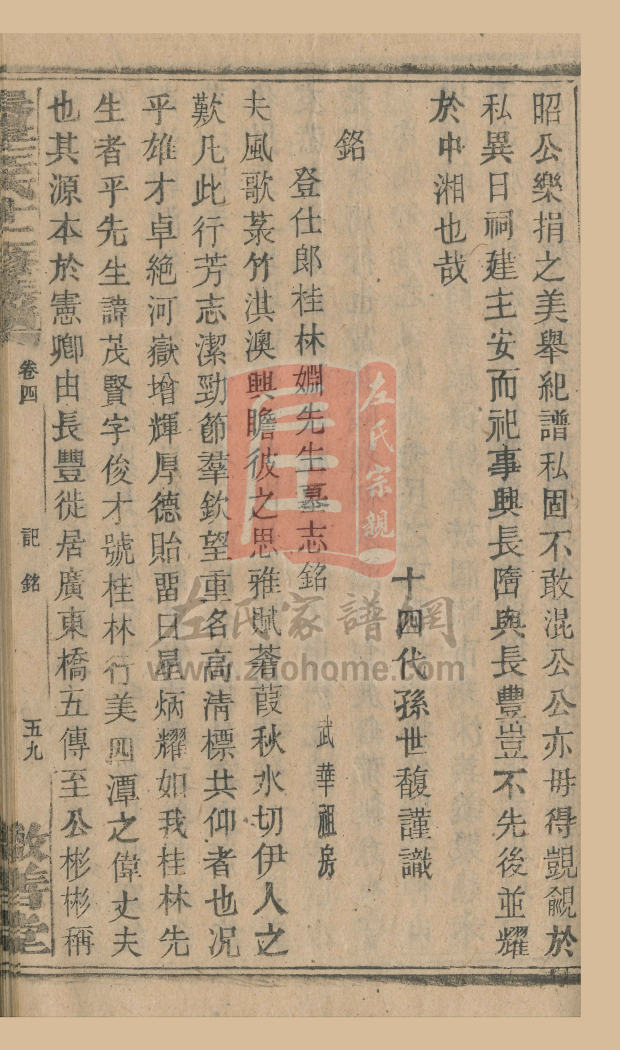 昭公樂捐之美舉紀譜私固不敢混公公亦毋得覬覦於
私異日祠建主安而祀事興長隋與長豐豈不先後並耀
於中湘也哉
十四代孫世馥謹識
銘
登仕郎桂林嫺先生墓志銘
武華祖房
夫風歌菉竹淇澳興瞻彼之思雅賦蒼葭秋水切伊人之
歎凡此行芳志潔勁節羣欽望重名高清標共仰者也況
乎雄才卓絶河嶽增輝厚德貽畱日星炳耀如我桂林先
生者乎先生諱茂賢字俊才號桂林行美四潭之偉丈夫
也其源本於憲卿由長豐徙居廣東橋五傳至公彬彬稱
卷四
記銘
五九
敬善堂
左氏宗親
左氏家譜網
www.zuohome.com